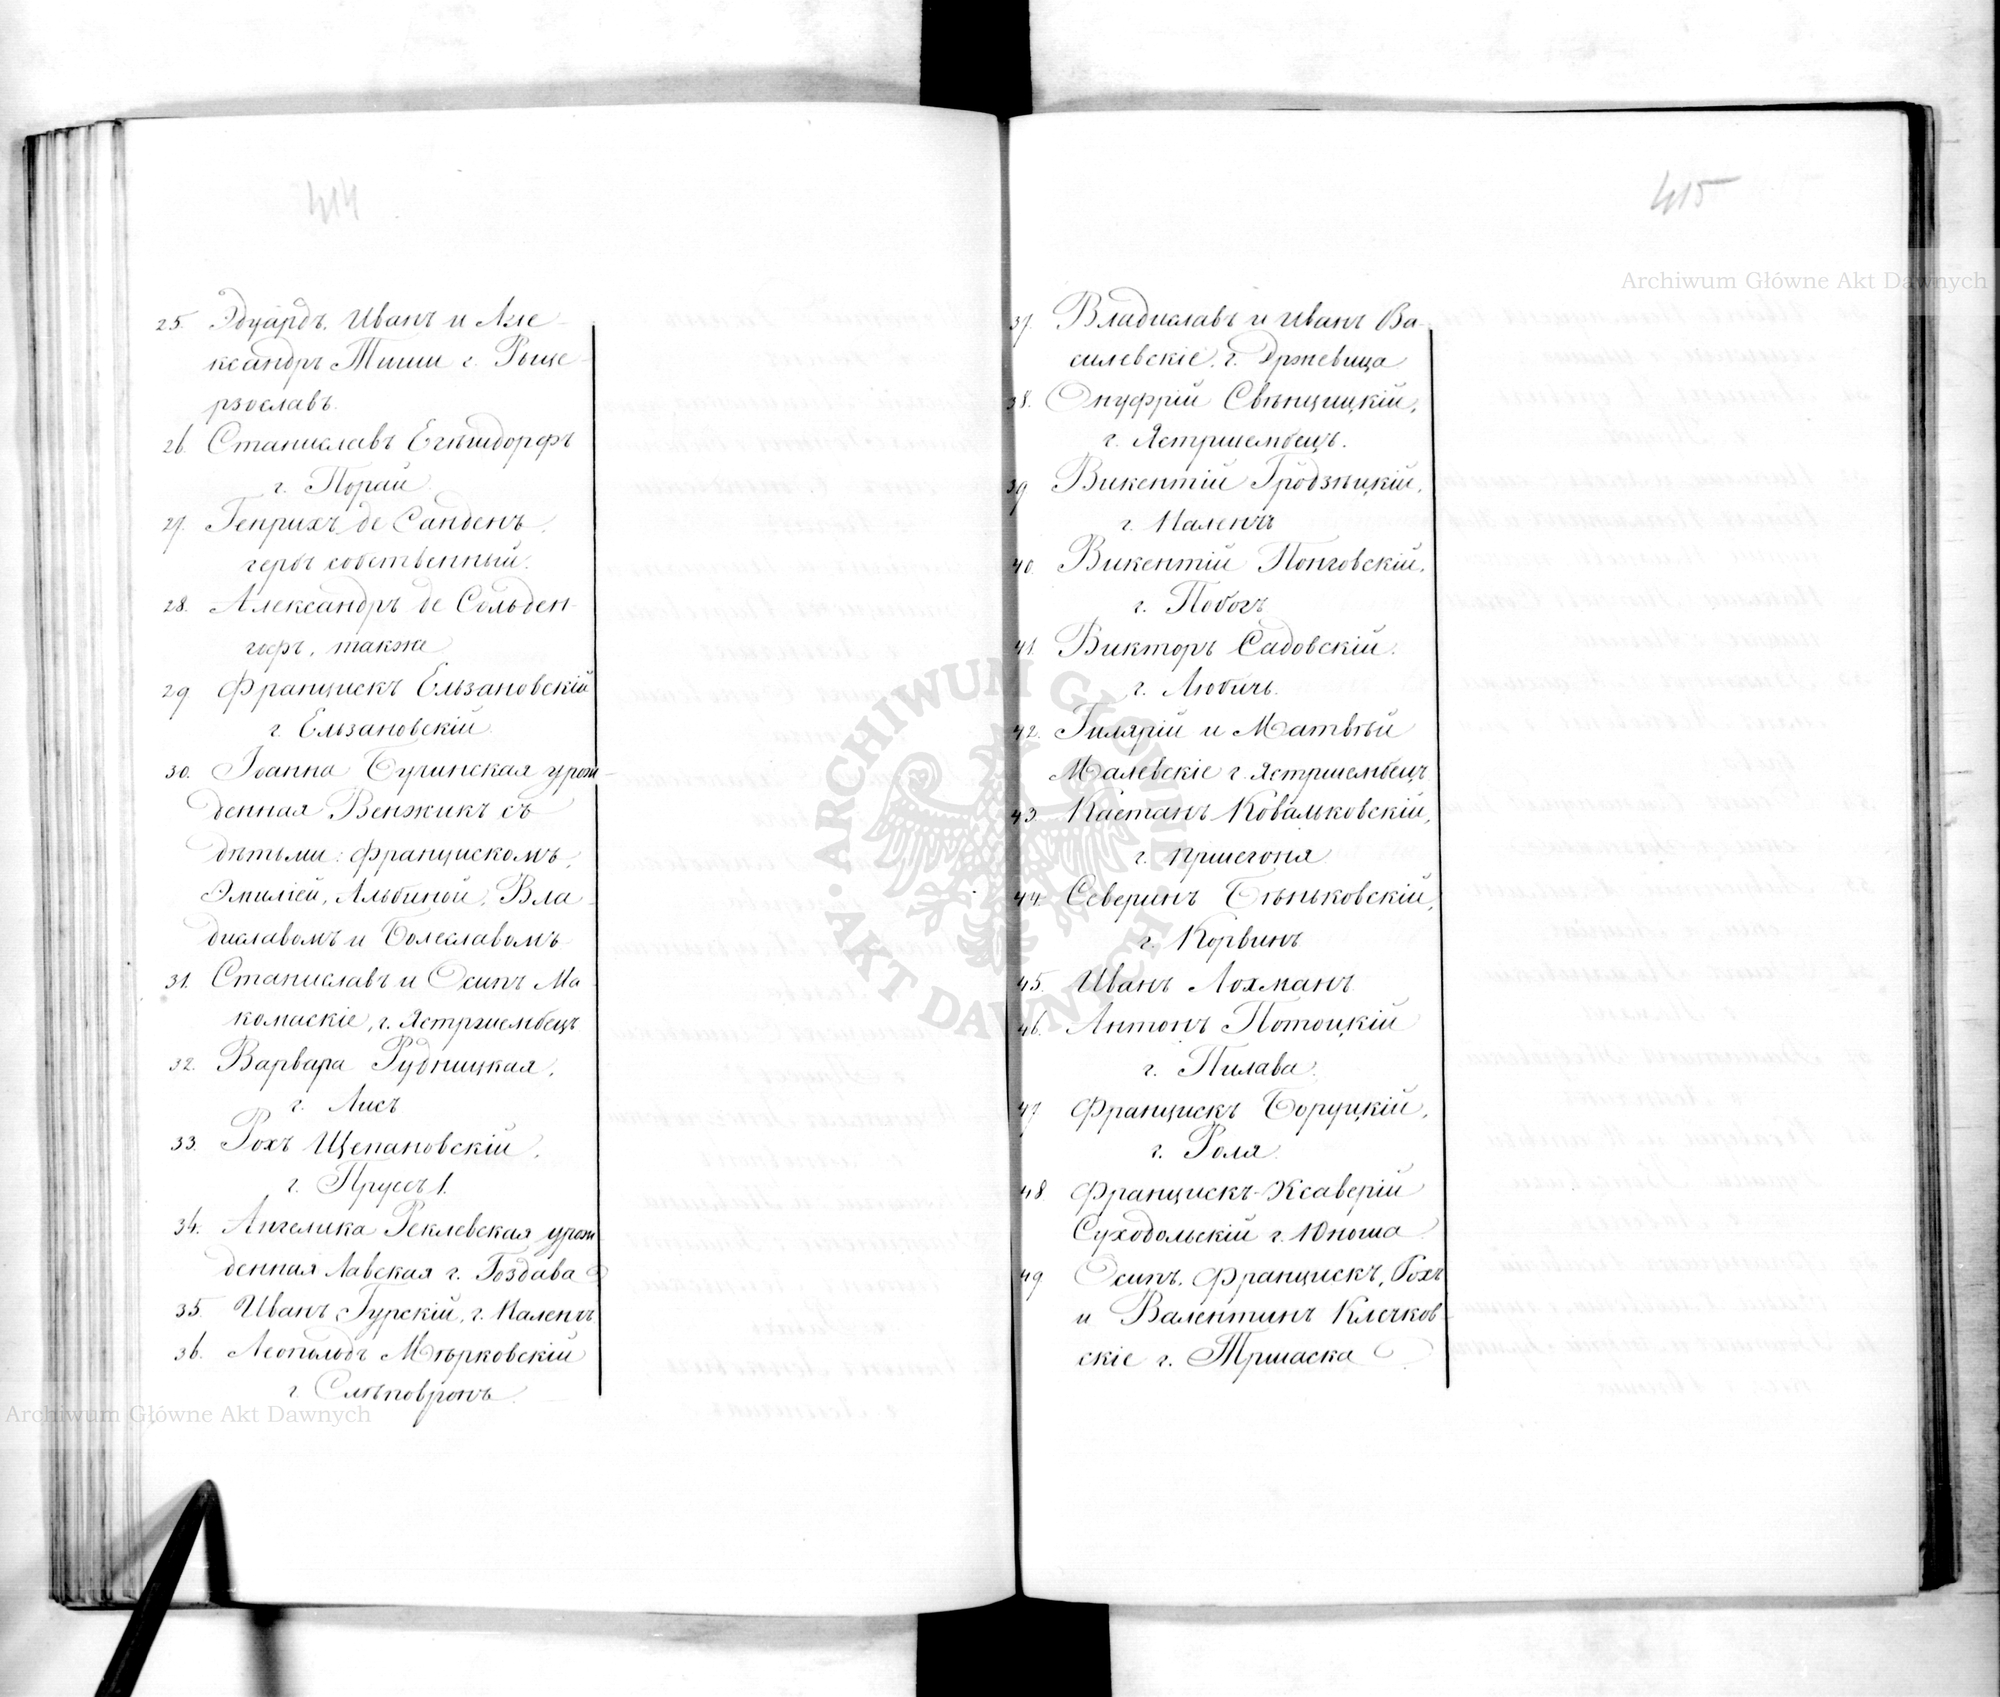 414
25. Эдуардъ, Иванъ и Але-
ксандръ Тиши г. Рыце-
рзославъ.
26. Станиславъ Егѣшдорфъ
г. Порай
27. Генрихъ де Санденъ,
гербъ собственный.
28. Александръ де Сольден-
гофъ, такжа
29 Францискъ Ельзановскій
г. Ельзановскій.
30. Іоанна Бучинская урож-
денная Венжикъ съ
дѣтьми: Францискомъ,
Эмиліей, Альбиной, Вла-
диславомъ и Болеславомъ
31. Станиславъ и Осипъ Ма-
комаскіе, г. Ястржембецъ
32. Варвара Рудницкая,
г. Лисъ
33. Рохъ Щепановскій,
г. Пруссъ 1.
34. Ангелика Реклевская урож-
денная Лавская г. Гоздава
35. Иванъ Гурскій, г. Наленчъ
36. Леопольдъ Мѣрковскій
г. Слѣповронъ.
415
Archiwum Główne Akt Dawnych
37. Владиславъ и Иванъ Ва-
силевскіе, г. Држевица
38. Онуфрій Свѣнцицкій,
г. Ястршембецъ.
39 Викентій Гродзѣцкій,
г. Наленчъ
40. Викентій Понговскій,
г. Побогъ
41. Викторъ Садовскій.
г. Любичъ.
42. Гилярій и Матвѣй
Малевскіе г. Ястршембецъ
43. Каетанъ Ковальковскій,
г. Пршегоня
44. Северинъ Бѣньковскій,
г. Корвинъ
45. Иванъ Лохманъ
46. Антонъ Потоцкій
г. Пилава.
47 Францискъ Боруцкій,
г. Роля.
48 Францискъ-Ксаверій
Суходольскій г. Юноша
49 Осипъ, Францискъ, Рохъ
и Валентинъ Клечков-
скіе г. Тршаска
ARCHIWUM GŁÓWNE · AKT DAWNYCH ·
Archiwum Główne Akt Dawnych